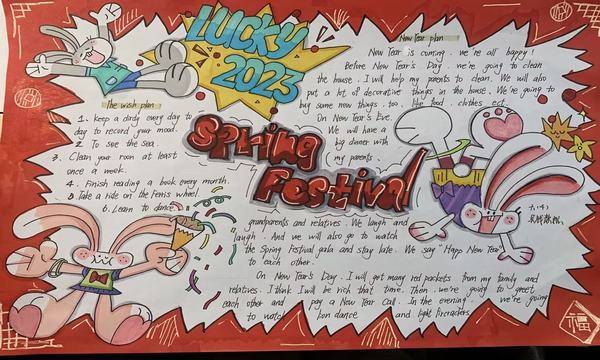 LUCKY
2023
Spring
Festival
The wish plan
1. keep a diray every day to
day to record your mood.
2 To see the sea.
3. Clean your room at least
once a week.
4. Finish reading a book every month.
5 Take a ride on the ferris wheel.
6. Learn to dance.
New Year plan
New Year is coming. we're all happy!
Before New Year's Day. we're going to clean
the house. I will help my parents to clean. We will also
put a lot of decorative things in the house. We're going to
buy some new things. too. like food. clothes ect.
On New Year's Eve.
We will have a
big dinner with
my parents.
grandparents and relatives. We laugh and
laugh. And we will also go to watch
the Spring Festival gala and stay late. We say "Happy New Year"
to each other.
On New Year's Day. I will get many red packets from my family and
relatives. I think I will be rich that time. Then. we're going to greet
each other and pay a New Year Call. In the evening. we're going
to watch lion dance and light firecrackers.
福